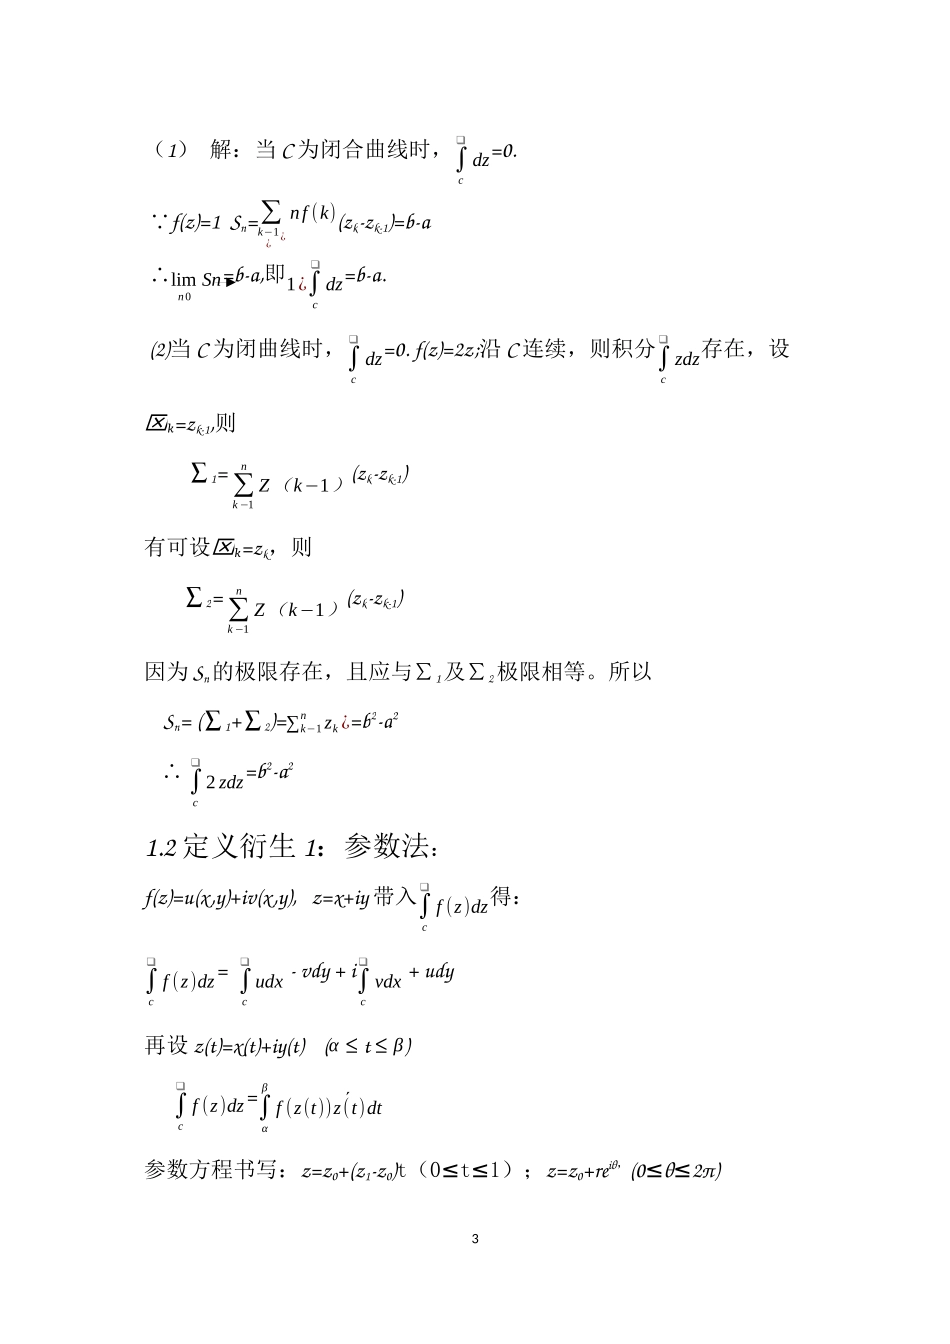 （1） 解：当 C 为闭合曲线时，∫_c dz=0.
∵f(z)=1 S_n=∑_{k−1} nf(k)(z_k-z_{k-1})=b-a
∴lim_{n0} Sn=b-a,即1¿∫_c dz=b-a.
(2)当 C 为闭曲线时，∫_c dz=0. f(z)=2z;沿 C 连续，则积分∫_c zdz 存在，设
_k=z_{k-1},则
∑_1=∑_{k−1}^{n} Z（k−1）(z_k-z_{k-1})
有可设_k=z_k，则
∑_2=∑_{k−1}^{n} Z（k−1）(z_k-z_{k-1})
因为 S_n 的极限存在，且应与∑_1 及∑_2 极限相等。所以
S_n= (∑_1+∑_2)=∑_{k−1}^{n} z_k¿=b^2-a^2
∴ ∫_c 2zdz=b^2-a^2
1.2 定义衍生 1：参数法：
f(z)=u(x,y)+iv(x,y), z=x+iy 带入∫_c f(z)dz 得：
∫_c f(z)dz= ∫_c udx - vdy + i∫_c vdx + udy
再设 z(t)=x(t)+iy(t) (α ≤ t ≤ β)
∫_c f(z)dz=∫_α^β f(z(t))z´(t)dt
参数方程书写：z=z_0+(z_1-z_0)t（0≤t≤1）；z=z_0+re^{iθ}, (0≤θ≤2π)
3